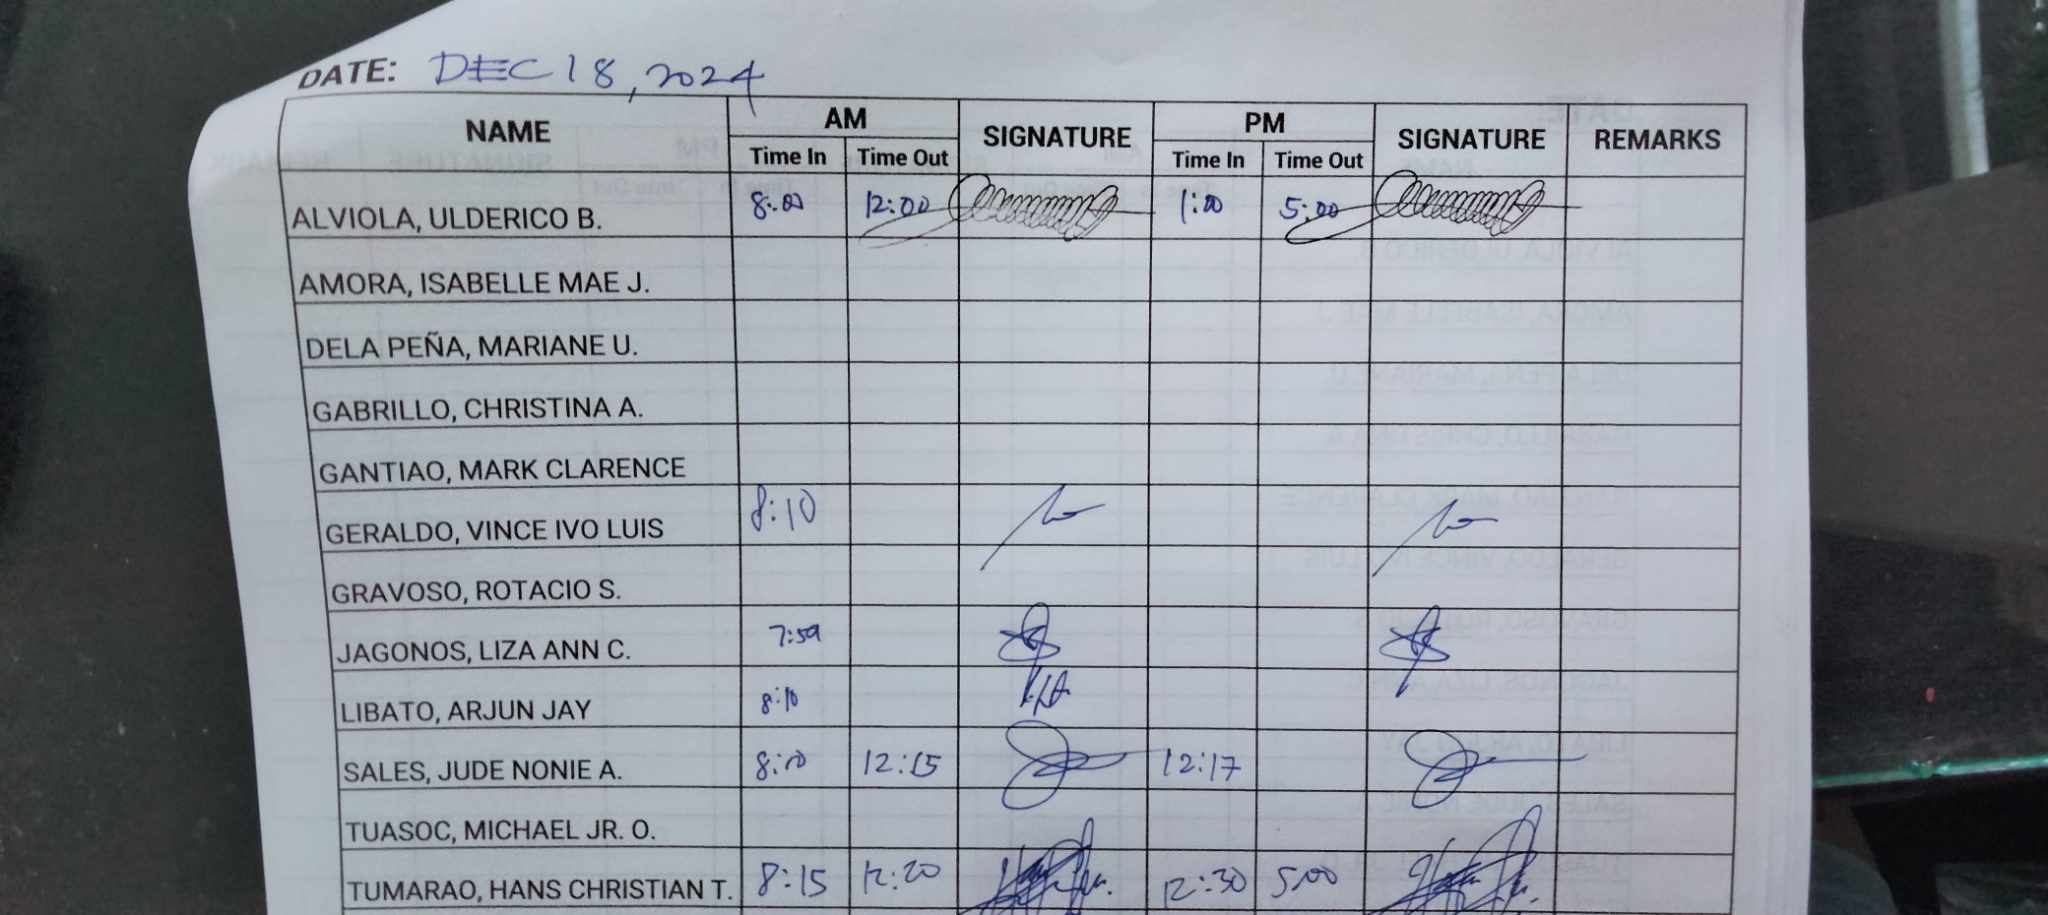 DATE: DEC 18, 2024
NAME AM SIGNATURE PM SIGNATURE REMARKS
Time In Time Out Time In Time Out
ALVIOLA, ULDERICO B. 8:00 12:00 1:00 5:00
AMORA, ISABELLE MAE J.
DELA PEÑA, MARIANE U.
GABRILLO, CHRISTINA A.
GANTIAO, MARK CLARENCE
GERALDO, VINCE IVO LUIS 8:10
GRAVOSO, ROTACIO S.
JAGONOS, LIZA ANN C. 7:59
LIBATO, ARJUN JAY 8:10
SALES, JUDE NONIE A. 8:10 12:15 12:17
TUASOC, MICHAEL JR. O.
TUMARAO, HANS CHRISTIAN T. 8:15 12:20 12:30 5:00